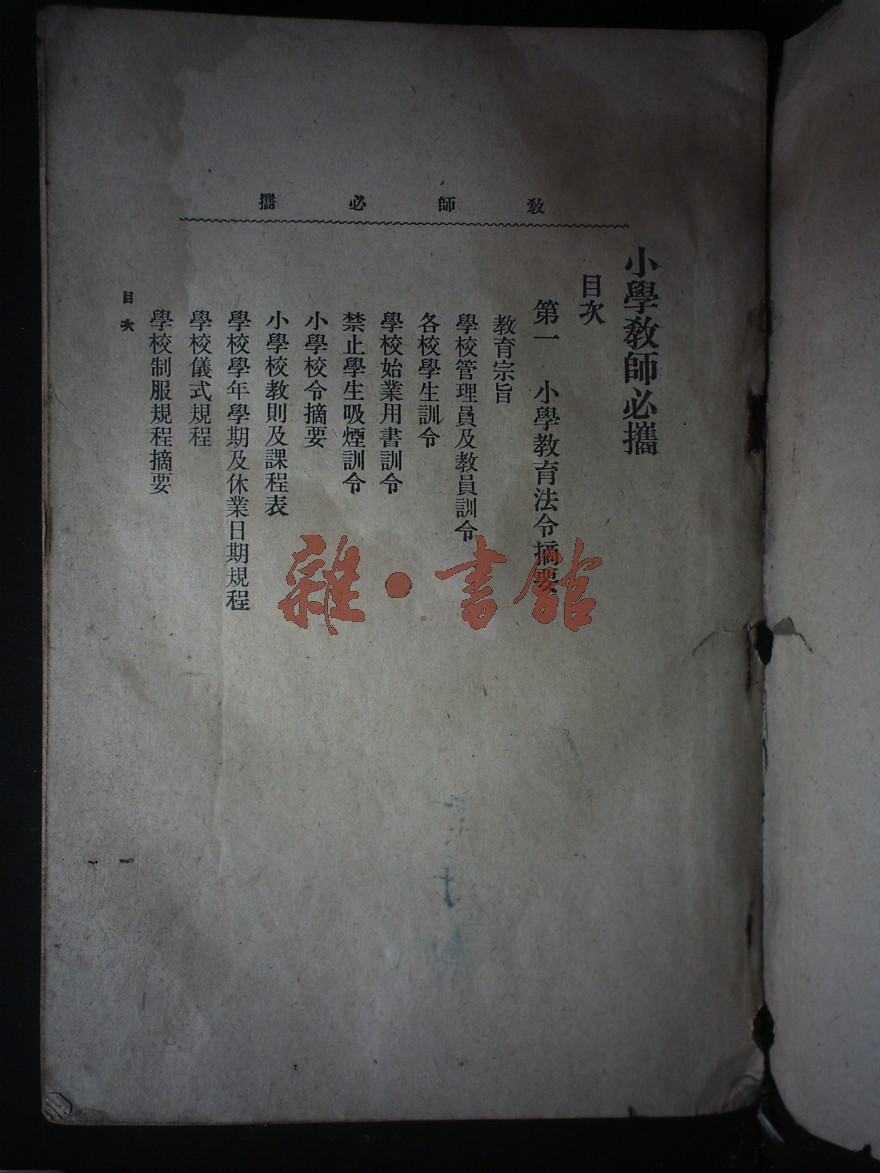 教師必攜
小學教師必攜
目次
第一　小學教育法令摘要
教育宗旨
學校管理員及教員訓令
各校學生訓令
學校始業用書訓令
禁止學生吸煙訓令
小學校令摘要
小學校教則及課程表
學校學年學期及休業日期規程
學校儀式規程
學校制服規程摘要
目次
一
雜·書館